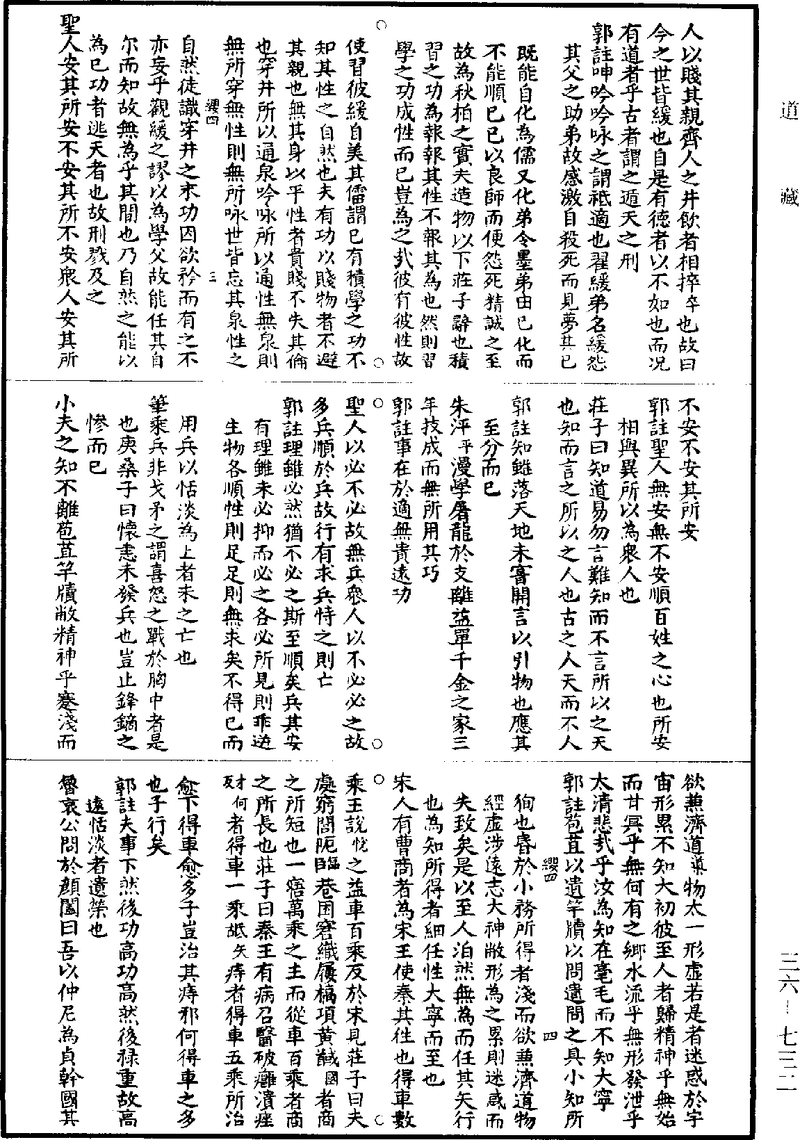 道藏
人以賤其親齊人之井飲者相捽卒也故曰
今之世皆緩也自是有德者以不如也而況
有道者乎古者謂之遁天之刑
郭註呻吟吟咏之謂祗適也翟緩弟名緩怨
其父之助弟故感激自殺死而見夢其已
既能自化為儒又化弟令墨弟由已化而
不能順已已以良師而便怨死精誠之至
故為秋柏之實夫造物以下莊子辭也積
習之功為報報其性不報其為也然則習
學之功成性而已豈為之哉彼有彼性故
使習彼緩自美其儒謂已有積學之功不
知其性之自然也夫有功以賤物者不避
其親也無其身以平性者貴賤不失其倫
也穿井所以通泉吟咏所以通性無泉則
無所穿無性則無所咏世皆忘其泉性之
纓四 三
自然徒識穿井之末功因欲矜而有之不
亦妄乎觀緩之謬以為學父故能任其自
尔而知故無為乎其間也乃自然之能以
為已功者逃天者也故刑戮及之
聖人安其所安不安其所不安衆人安其所
不安不安其所安
郭註聖人無安無不安順百姓之心也所安
相與異所以為衆人也
莊子曰知道易勿言難知而不言所以之天
也知而言之所以之人也古之人天而不人
郭註知雖落天地未嘗開言以引物也應其
至分而已
朱泙平漫學屠龍於支離益單千金之家三
年技成而無所用其巧
郭註事在於適無貴遠功
聖人以必不必故無兵衆人以不必必之故
多兵順於兵故行有求兵恃之則亡
郭註理雖必然猶不必之斯至順矣兵其安
有理雖未必抑而必之各必所見則乖逆
生物各順性則足足則無求矣不得已而
用兵以恬淡為上者未之亡也
筆乘兵非戈矛之謂喜怒之戰於胸中者是
也庚桑子曰懷恚未發兵也豈止鋒鏑之
慘而已
小夫之知不離苞苴竿牘敝精神乎蹇淺而
欲兼濟道導物太一形虛若是者迷惑於宇
宙形累不知大初彼至人者歸精神乎無始
而甘冥乎無何有之鄉水流乎無形發泄乎
太清悲哉乎汝為知在毫毛而不知大寧
郭註苞苴以遺竿牘以問遺問之具小知所
纓四 四
徇也昏於小務所得者淺而欲兼濟道物
經虛涉遠志大神敝形為之累則迷惑而
失致矣是以至人泊然無為而任其天行
也為知所得者細任性大寧而至也
宋人有曹商者為宋王使秦其往也得車數
乘王說悅之益車百乘反於宋見莊子曰夫
處窮閭阨臨巷困窘織屨槁項黃馘國者商
之所短也一寤萬乘之主而從車百乘者商
之所長也莊子曰秦王有病召醫破癰潰痤
矬何者得車一乘舐矢痔者得車五乘所治
愈下得車愈多子豈治其痔邪何得車之多
也子行矣
郭註夫事下然後功高功高然後祿重故高
遠恬淡者遺榮也
魯哀公問於顏闔曰吾以仲尼為貞幹國其
三六-七三二